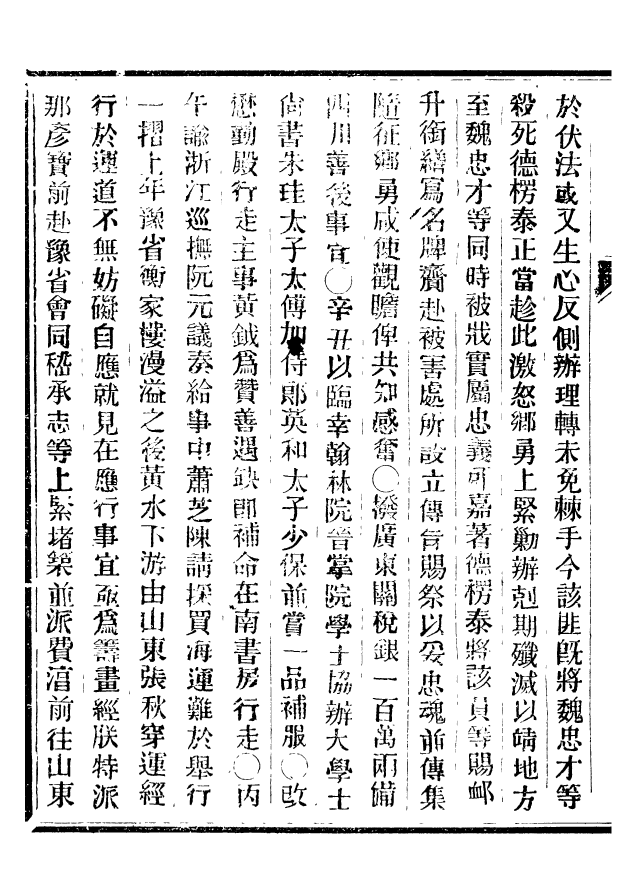 於伏法或又生心反側辦理轉未免棘手今該匪旣將魏忠才等
殺死德楞泰正當趁此激怒鄉勇上緊勦辦剋期殲滅以靖地方
至魏忠才等同時被戕實屬忠義可嘉著德楞泰將該員等賜䘏
升銜繕寫名牌齎赴被害處所設立傳旨賜祭以妥忠魂並傳集
隨征鄉勇咸使觀瞻俾共知感奮〇撥廣東關稅銀一百萬兩備
四川善後事宜〇辛丑以臨幸翰林院晉掌院學士協辦大學士
尚書朱珪太子太傅加侍郎英和太子少保並賞一品補服〇改
懋勤殿行走主事黃鉞爲贊善遇缺卽補命在南書房行走〇丙
午諭浙江巡撫阮元議奏給事中蕭芝陳請採買海運難於舉行
一摺上年豫省衡家樓漫溢之後黃水下游由山東張秋穿運經
行於運道不無妨礙自應就見在應行事宜亟爲籌畫經朕特派
那彥寶前赴豫省會同嵇承志等上緊堵築並派費淳前往山東